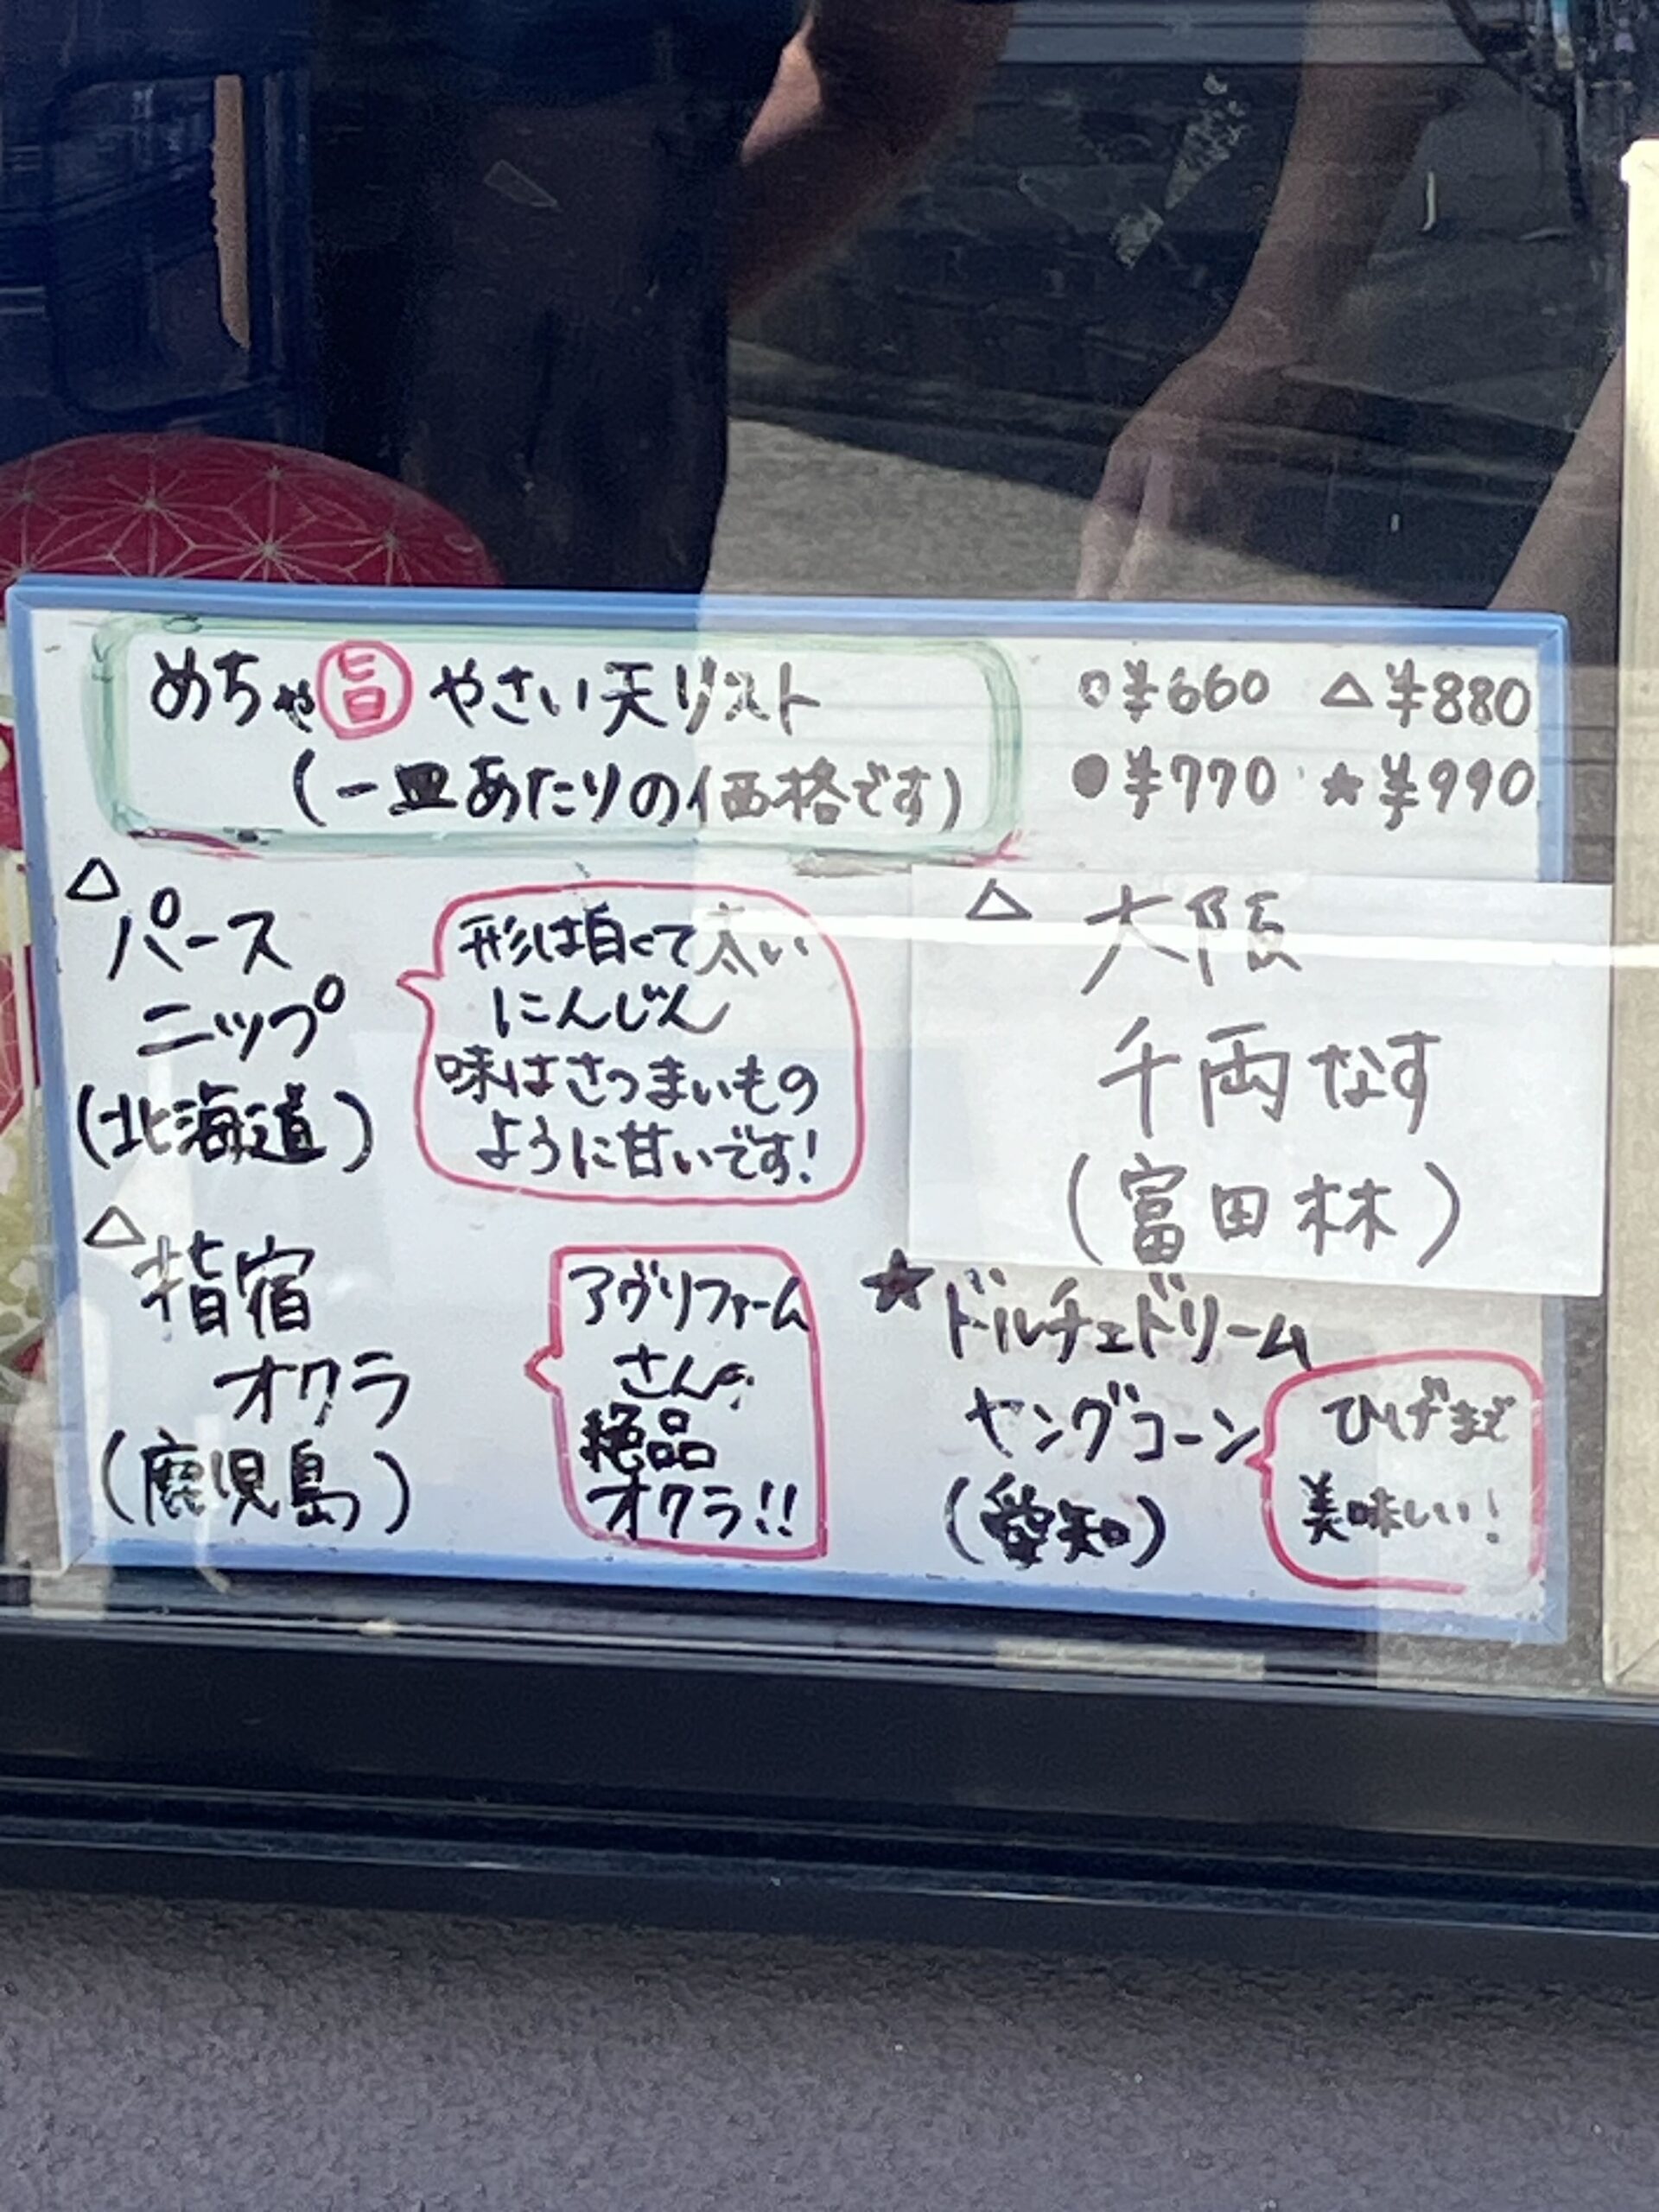 めちゃ旨やさい天リスト
(一皿あたりの価格です)
○¥660 △¥880
●¥770 ★¥990
△
パース
ニップ
(北海道)
形は白くて太い
にんじん
味はさつまいもの
ように甘いです!
△
大阪
千両なす
(富田林)
△
指宿
オクラ
(鹿児島)
アヴリファーム
さんの
絶品
オクラ!!
★ドルチェドリーム
ヤングコーン
(愛知)
ひげまで
美味しい!